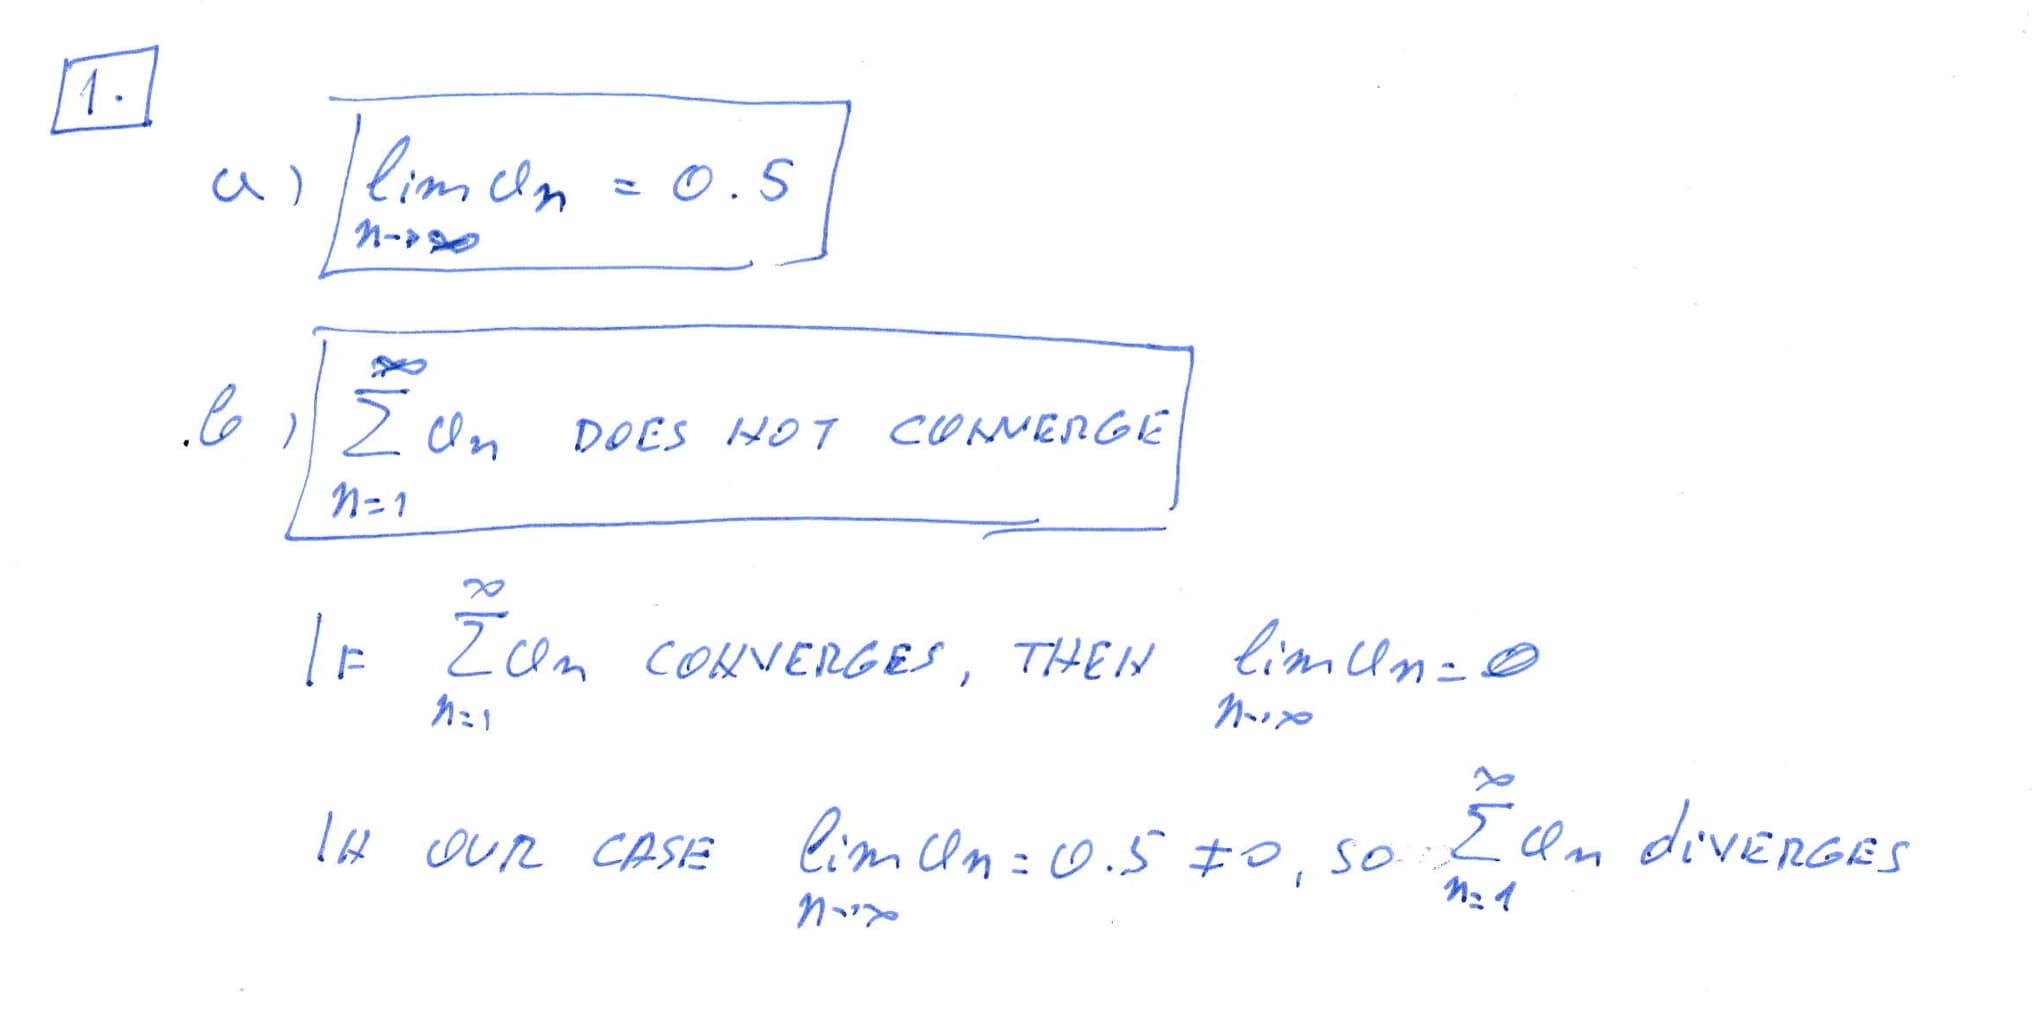 1.
a) lim an = 0.5
n→∞
∞
b) Σ an DOES NOT CONVERGE
n=1
∞
IF Σ an CONVERGES, THEN lim an = 0
n=1 n→∞
∞
IN OUR CASE lim an = 0.5 ≠ 0, SO Σ an diVERGES
n→∞ n=1